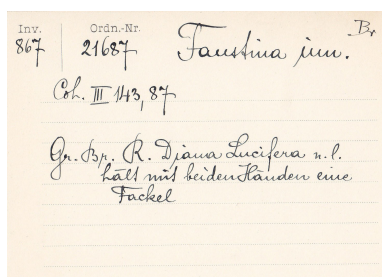 Inv. Ordn.-Nr. Br
867 21687 Faustina iun.
Coh. III 143,87
Gr. Br. R. Diana Lucifera n. l.
hält mit beiden Händen eine
Fackel